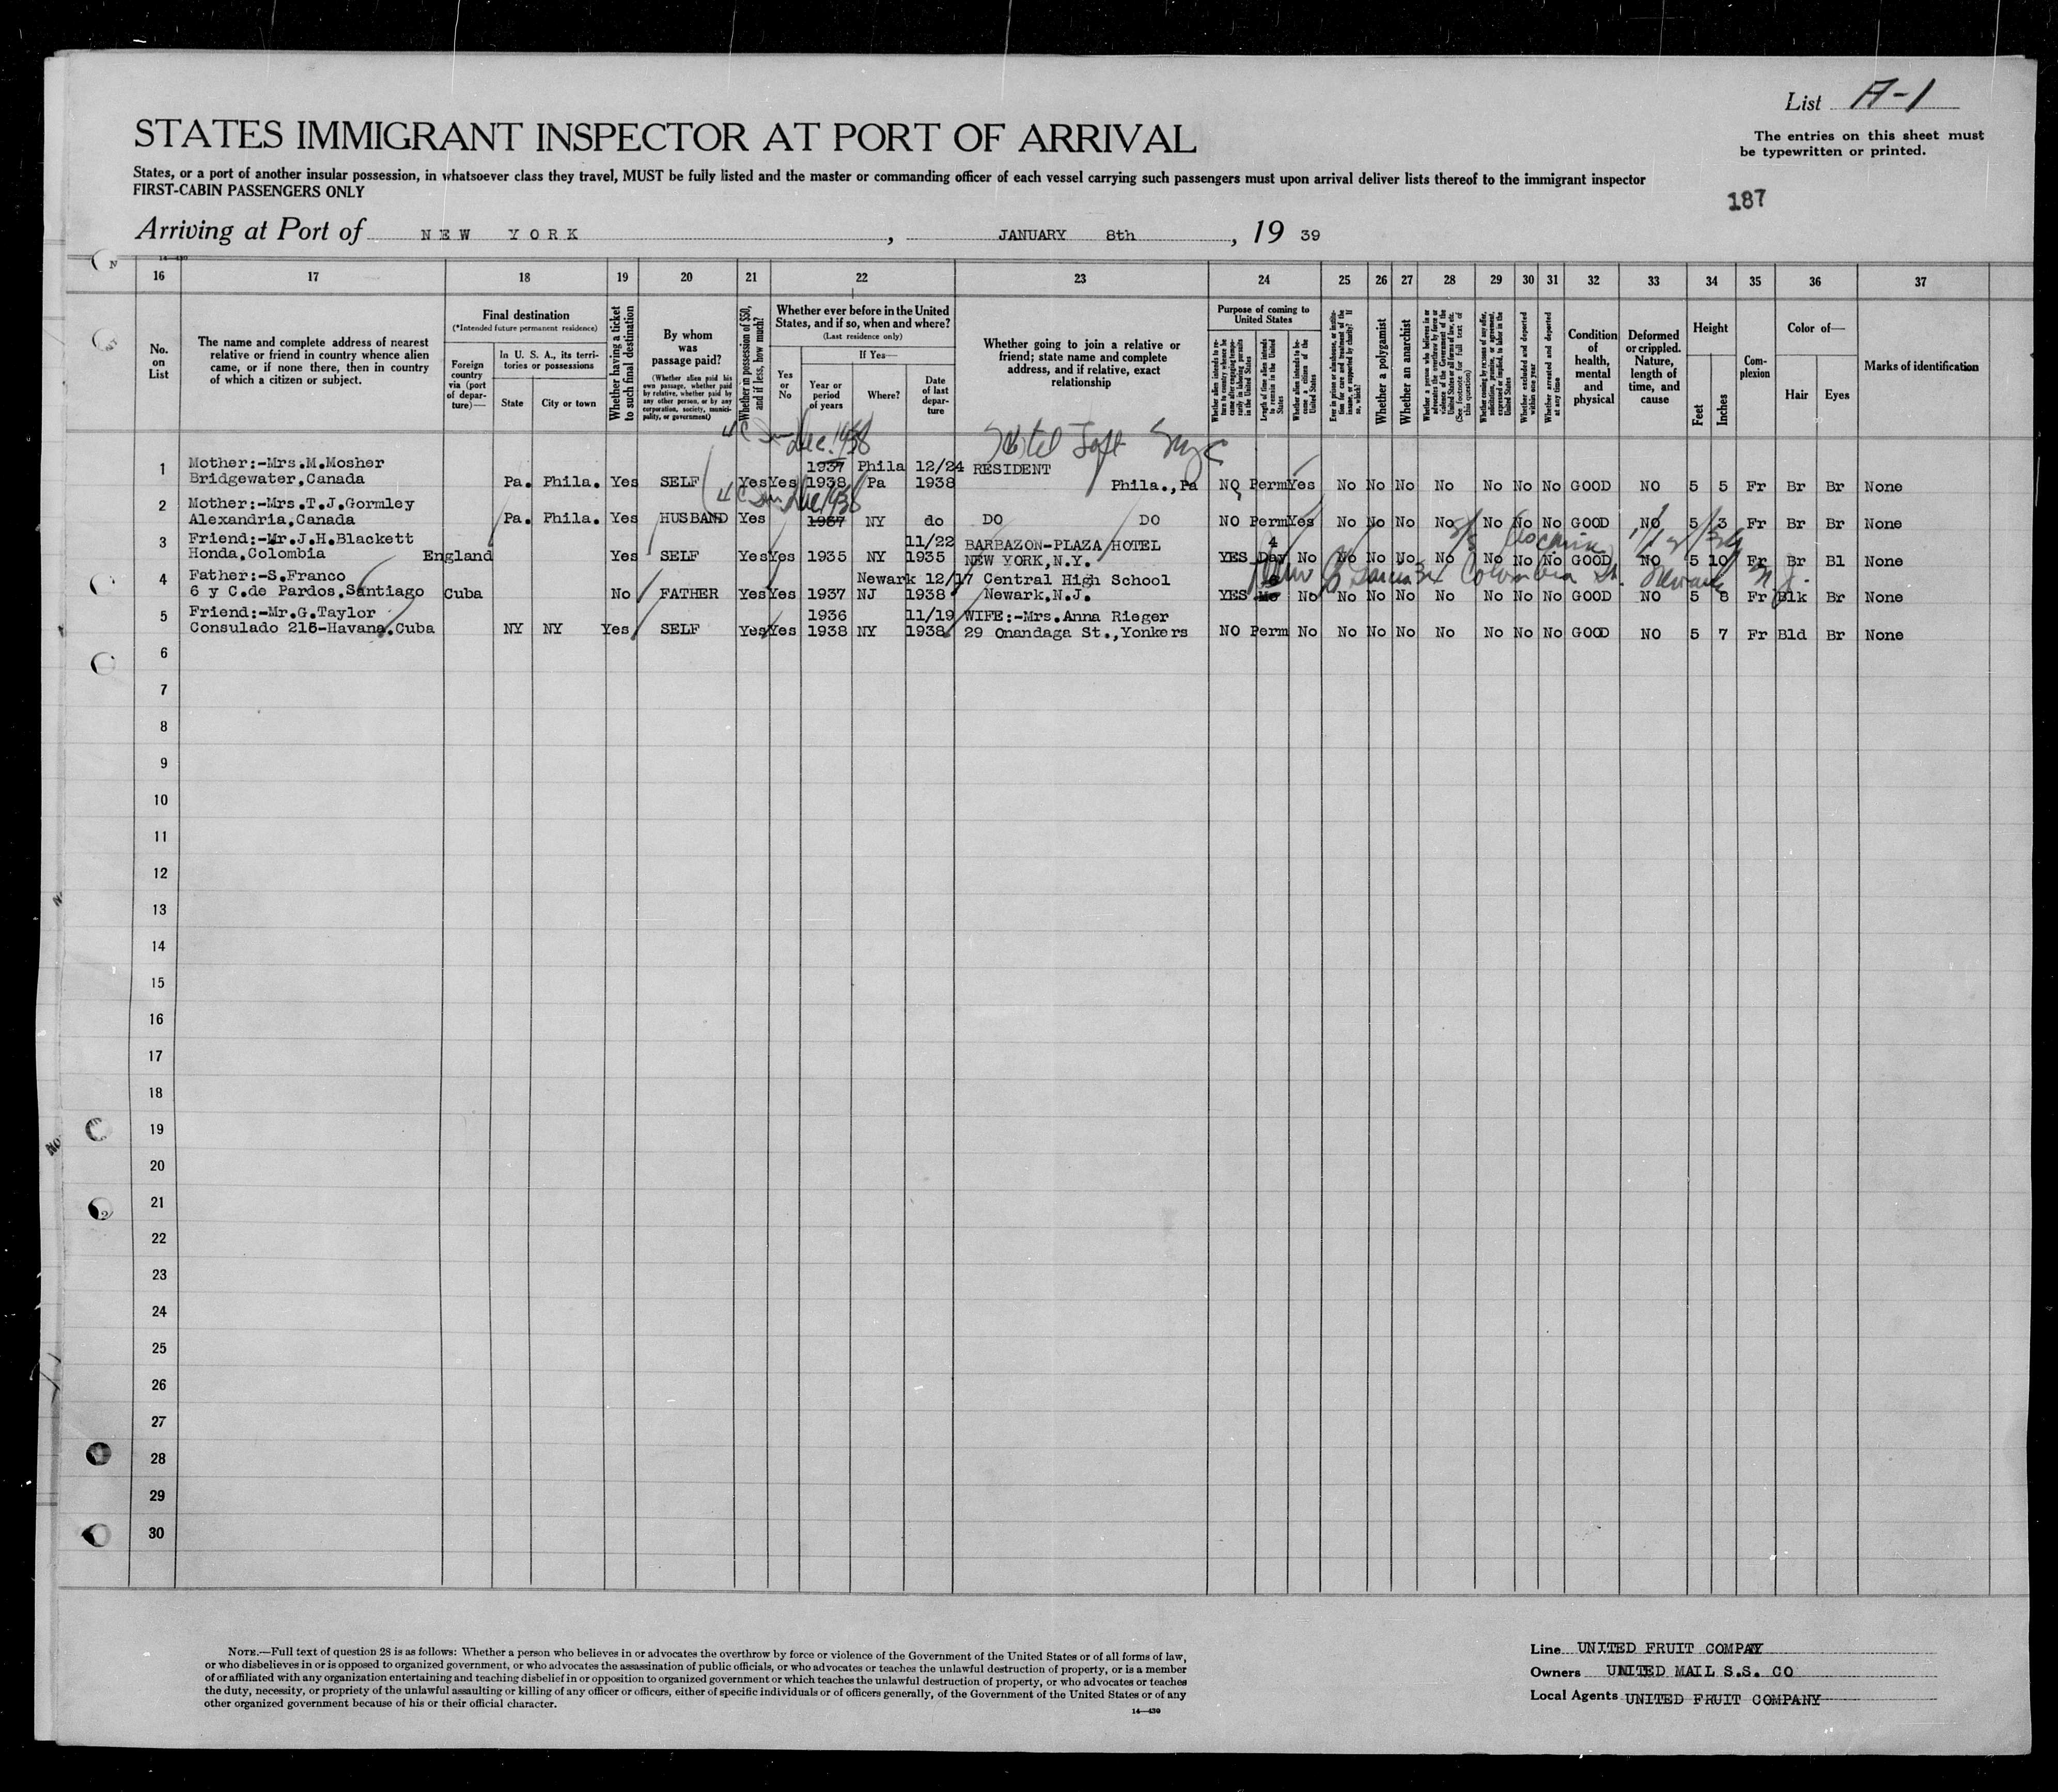 List A-1
STATES IMMIGRANT INSPECTOR AT PORT OF ARRIVAL
The entries on this sheet must
be typewritten or printed.
States, or a port of another insular possession, in whatsoever class they travel, MUST be fully listed and the master or commanding officer of each vessel carrying such passengers must upon arrival deliver lists thereof to the immigrant inspector
FIRST-CABIN PASSENGERS ONLY
187
Arriving at Port of NEW YORK, JANUARY 8th, 19 39
14—430
16 17 18 19 20 21 22 23 24 25 26 27 28 29 30 31 32 33 34 35 36 37
No. on List
The name and complete address of nearest
relative or friend in country whence alien
came, or if none there, then in country
of which a citizen or subject.
Final destination
(*Intended future permanent residence)
Foreign country via (port of departure)—
In U. S. A., its territories or possessions
State
City or town
Whether having a ticket to such final destination
By whom was passage paid?
(Whether alien paid his own passage, whether paid by relative, whether paid by any other person, or by any corporation, society, municipality, or government)
Whether in possession of $50, and if less, how much?
Whether ever before in the United States, and if so, when and where?
(Last residence only)
Yes or No
If Yes—
Year or period of years
Where?
Date of last departure
Whether going to join a relative or
friend; state name and complete
address, and if relative, exact
relationship
Purpose of coming to United States
Length of time alien intends to remain in the United States
Whether alien intends to become a citizen of the United States
Whether a polygamist
Whether an anarchist
(See footnote for full text of this question)
Whether excluded and deported within one year
Whether arrested and deported at any time
Condition of health, mental and physical
Deformed or crippled. Nature, length of time, and cause
Height
Feet
Inches
Complexion
Color of—
Hair
Eyes
Marks of identification
Dec. 1938
Hotel Taft NYC
1 Mother:-Mrs.M.Mosher 1937 Phila 12/24 RESIDENT
Bridgewater,Canada Pa. Phila. Yes SELF Yes Yes 1938 Pa 1938 Phila.,Pa NO Perm Yes No No No No No No No GOOD NO 5 5 Fr Br Br None
Dec 1938
2 Mother:-Mrs.T.J.Gormley
Alexandria,Canada Pa. Phila. Yes HUSBAND Yes 1937 NY do DO DO NO Perm Yes No No No No No No No GOOD NO 5 3 Fr Br Br None
3 Friend:-Mr.J.H.Blackett 11/22 BARBAZON-PLAZA HOTEL 4
Honda,Colombia England Yes SELF Yes Yes 1935 NY 1935 NEW YORK,N.Y. YES Day No No No No No No No No GOOD NO 5 10 Fr Br Bl None
4 Father:-S.Franco Newark 12/17 Central High School
Columbia St. Newark N.J.
6 y C.de Pardos.Santiago Cuba No FATHER Yes Yes 1937 NJ 1938 Newark,N.J. YES Mo No No No No No No No No GOOD NO 5 8 Fr Blk Br None
5 Friend:-Mr.G.Taylor 1936 11/19 WIFE:-Mrs.Anna Rieger
Consulado 216-Havana.Cuba NY NY Yes SELF Yes Yes 1938 NY 1938 29 Onandaga St.,Yonkers NO Perm No No No No No No No No GOOD NO 5 7 Fr Bld Br None
6
7
8
9
10
11
12
13
14
15
16
17
18
19
20
21
22
23
24
25
26
27
28
29
30
NOTE.—Full text of question 28 is as follows: Whether a person who believes in or advocates the overthrow by force or violence of the Government of the United States or of all forms of law,
or who disbelieves in or is opposed to organized government, or who advocates the assassination of public officials, or who advocates or teaches the unlawful destruction of property, or is a member
of or affiliated with any organization entertaining and teaching disbelief in or opposition to organized government or which teaches the unlawful destruction of property, or who advocates or teaches
the duty, necessity, or propriety of the unlawful assaulting or killing of any officer or officers, either of specific individuals or of officers generally, of the Government of the United States or of any
other organized government because of his or their official character.
14—430
Line UNITED FRUIT COMPAY
Owners UNITED MAIL S.S. CO
Local Agents UNITED FRUIT COMPANY